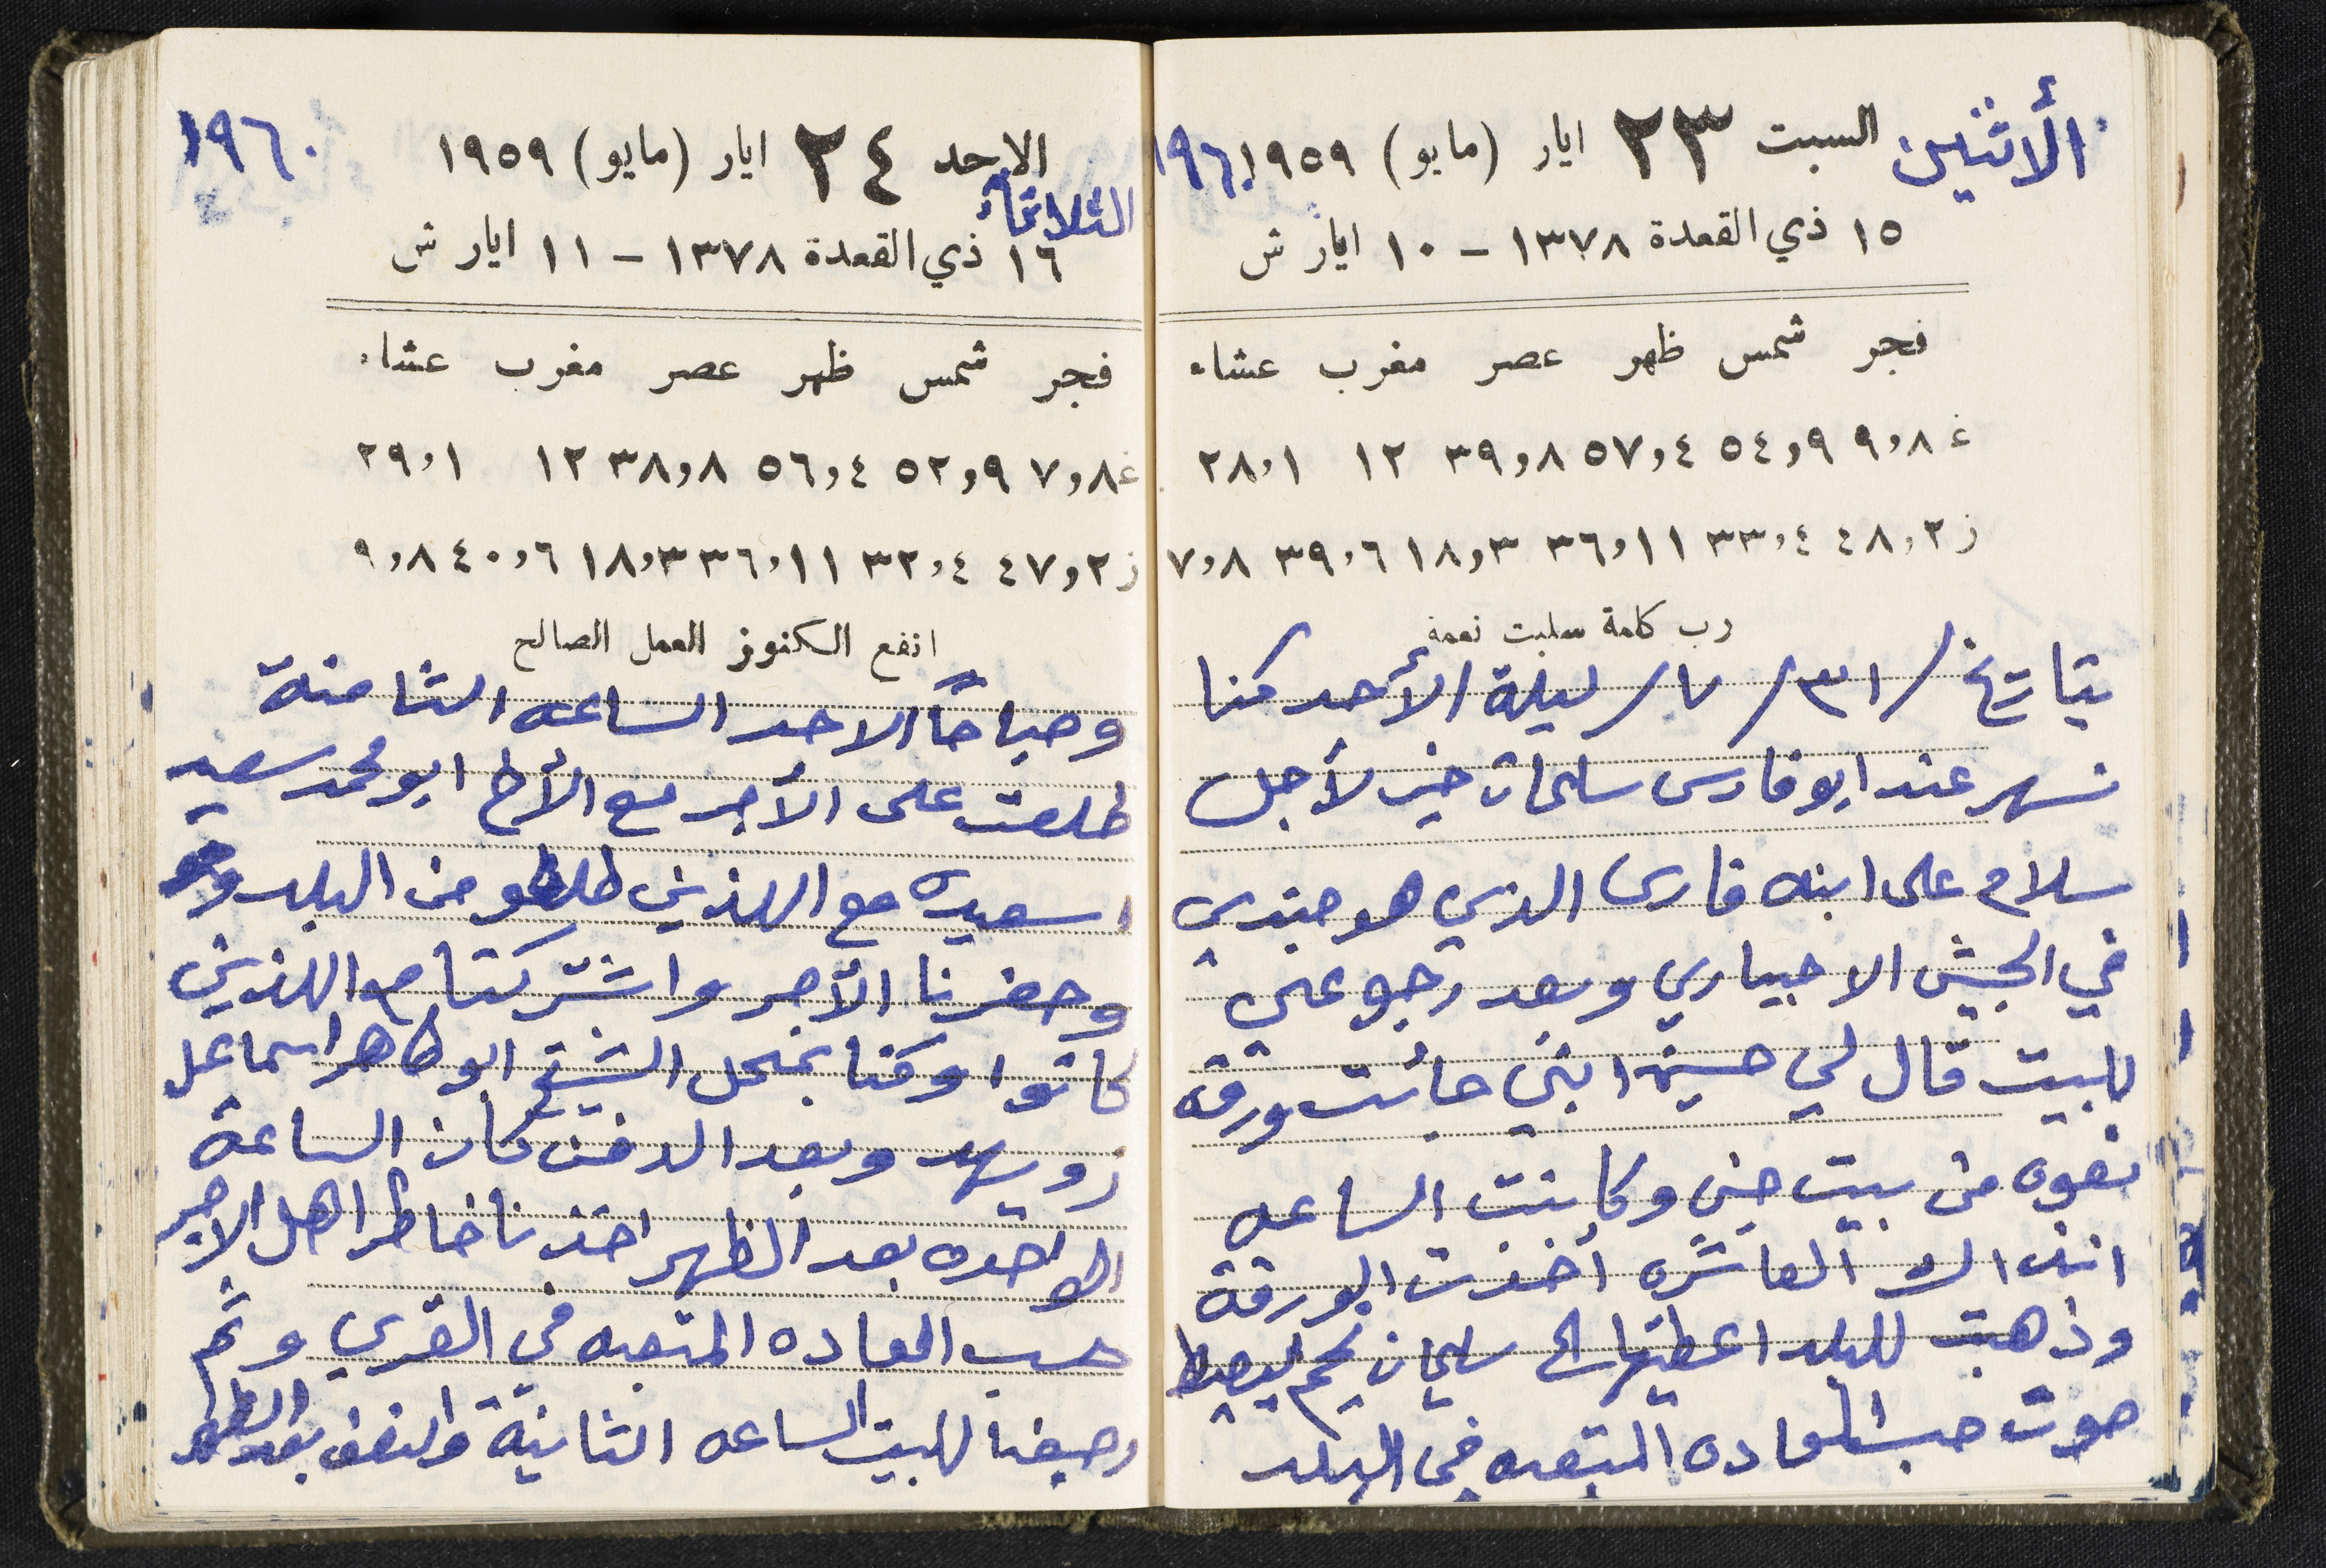 الأثنين السبت ٢٣ ايار (مايو) ١٩٥٩ ١٩٦٠
١٥ ذي القعدة ١٣٧٨ – ١٠ ايار ش
فجر شمس ظهر عصر مغرب عشاء
غ ٩٫٨ ٥٤٫٩ ٥٧٫٤ ٣٩٫٨ ١٢ ٢٨٫١
ز ٤٨٫٢ ٣٣٫٤ ٣٦٫١١ ١٨٫٣ ٣٩٫٦ ٧٫٨
رب كلمة سلبت نعمة
بتاريخ /٣١/ ٧/ ليلة الأحد كنا
نسهر عند ابو فارس سلمان خير لأجل
سلام على ابنه فارس الذي هو جندي
في الجيش الاجباري وبعد رجوعي
للبيت قال لي حسين ابني جائت ورقه
نعوه من بيت جن وكانت الساعه
العاشره أخذت الورقة
وذهبت للبلد اعطيتها الى سلمان
صوت حسب العاده المتبعه في البلد
الاحد ٢٤ ايار (مايو) ١٩٥٩ ١٩٦٠
الثلاثاء
١٦ ذي القعدة ١٣٧٨ – ١١ ايار ش
فجر شمس ظهر عصر مغرب عشاء
غ ٧٫٨ ٥٢٫٩ ٥٦٫٤ ٣٨٫٨ ١٢ ٢٩٫١
ز ٤٧٫٢ ٣٢٫٤ ٣٦٫١١ ١٨٫٣ ٤٠٫٦ ٩٫٨
انفع الكنوز العمل الصالح
وصباحاً الاحد الساعه الثامنة
طلعت على الأجر مع الأخ ابو محمد سعيد
اسعيده مع اللذين طلعو من البلد
وحضرنا الأجر واشتركنا مع اللذين
كانوا وكنا بمحل الشيخ ابو طاهر اسماعل
زويهد وبعد الدفن كان الساعة
الواحده بعد الظهر اخذنا خاطر اهل الاجر
حسب العاده المتبعه في القرى وثم
رجعنا للبيت الساعه الثانية والنصف بعد الظهر